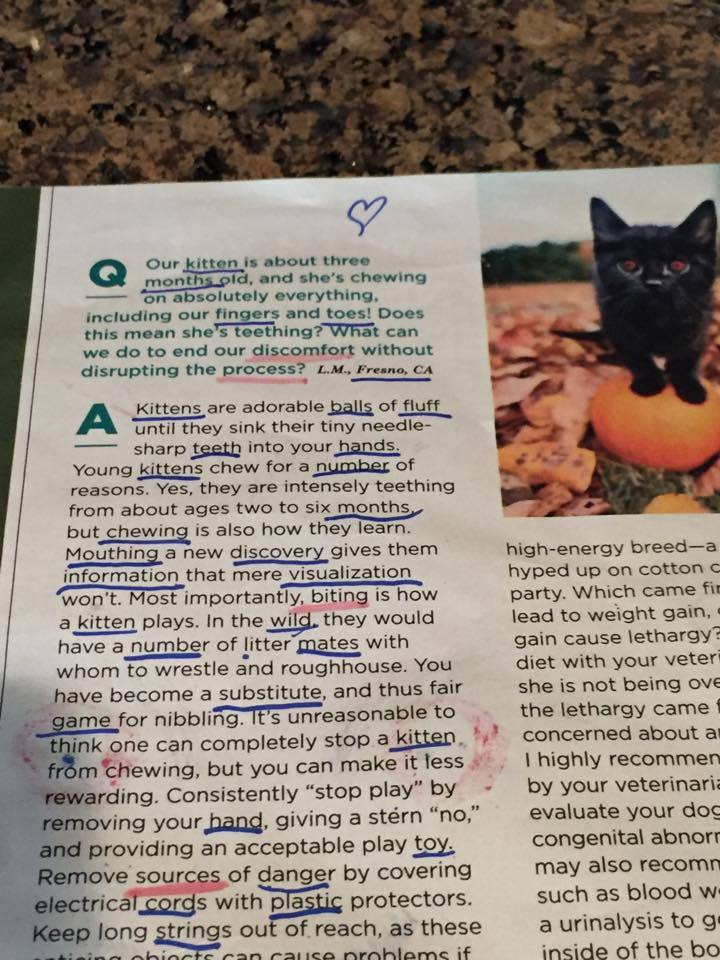 Q Our kitten is about three
months old, and she's chewing
on absolutely everything,
including our fingers and toes! Does
this mean she's teething? What can
we do to end our discomfort without
disrupting the process? L.M., Fresno, CA
A Kittens are adorable balls of fluff
until they sink their tiny needle-
sharp teeth into your hands.
Young kittens chew for a number of
reasons. Yes, they are intensely teething
from about ages two to six months,
but chewing is also how they learn.
Mouthing a new discovery gives them
information that mere visualization
won't. Most importantly, biting is how
a kitten plays. In the wild, they would
have a number of litter mates with
whom to wrestle and roughhouse. You
have become a substitute, and thus fair
game for nibbling. It's unreasonable to
think one can completely stop a kitten
from chewing, but you can make it less
rewarding. Consistently "stop play" by
removing your hand, giving a stern "no,"
and providing an acceptable play toy.
Remove sources of danger by covering
electrical cords with plastic protectors.
Keep long strings out of reach, as these
enticing objects can cause problems if
high-energy breed—a
hyped up on cotton c
party. Which came fir
lead to weight gain,
gain cause lethargy?
diet with your veteri
she is not being ove
the lethargy came f
concerned about a
I highly recommen
by your veterinaria
evaluate your dog
congenital abnorm
may also recomm
such as blood w
a urinalysis to g
inside of the bo